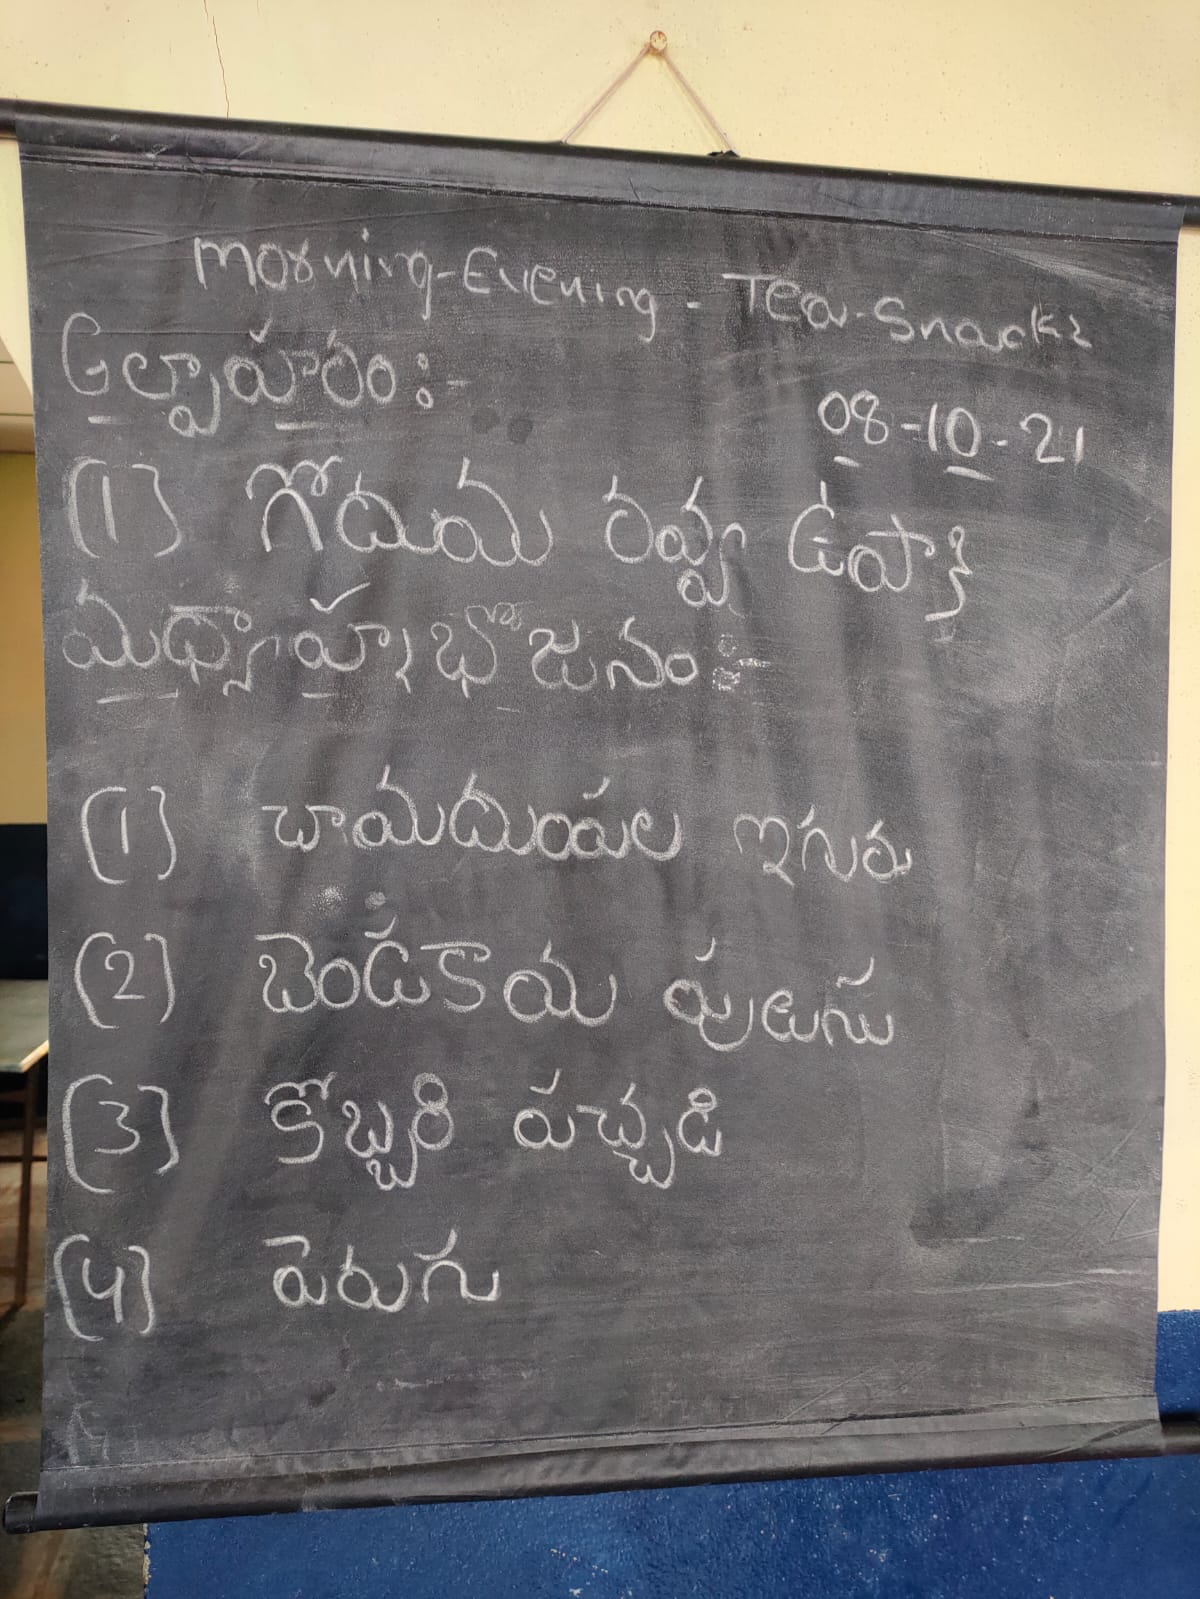 morning-Evening - Tea-Snacks
అల్పాహారం:-
08-10-21
(1) గోదుమ రవ్వ ఉప్మా
మధ్యాహ్న భోజనం:-
(1) చామదుంపల ఇగురు
(2) బెండకాయ పులుసు
(3) కోబ్బరి పచ్చడి
(4) పెరుగు